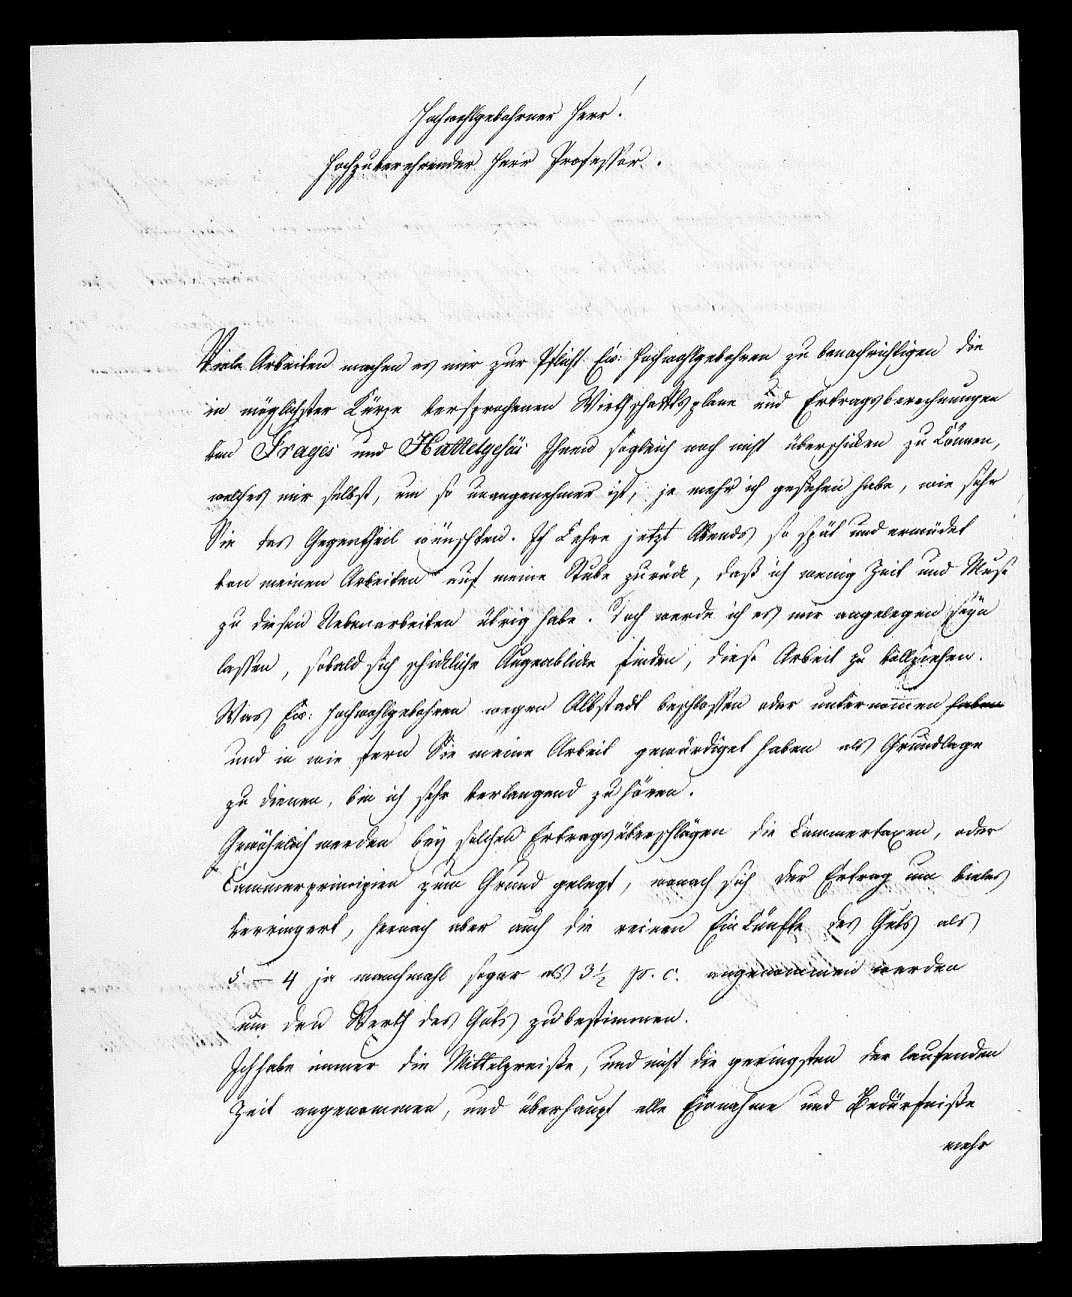 Hochwohlgebohrner Herr!
Hochzuverehrender Herr Professor.
Viele Arbeiten machen es mir zur Pflicht Ew: Hochwohlgebohren zu benachrichtigen die
in möglichster Kürze versprochenen Wirthschaftspläne und Ertragsberechnungen
von Frages und Hattelgehäi Ihnen sogleich noch nicht überschicken zu können,
welches mir selbst, um so unangenehmer ist, je mehr ich gesehen habe, wie sehr
Sie das Gegentheil wünschten. Ich kehre jetzt Abends so spät und ermüdet
von meinen Arbeiten auf meine Stube zurück, daß ich wenig Zeit und Muse
zu diesen Nebenarbeiten übrig habe. Doch werde ich es mir angelegen seyn
lassen, sobald sich schickliche Augenblicke finden, diese Arbeit zu vollziehen.
Was Ew: Hochwohlgebohren wegen Albstadt beschlossen oder unternommen haben
und in wie fern Sie meine Arbeit gewürdiget haben als Grundlage
zu dienen, bin ich sehr verlangend zu hören.
Gewöhnlich werden bey solchen Ertragsüberschlägen die Cammertaxen, oder
Cammerprincipien zum Grund gelegt, wonach sich der Ertrag um vieles
verringert, hernach aber auch die reinen Einkünfte des Guts als
5 – 4 ja manchmahl sogar als 3 1/2 p. c. angenommen werden
um den Werth des Guts zu bestimmen.
Ich habe immer die Mittelpreiße, und nicht die geringsten der laufenden
Zeit angenommen, und überhaupt alle Einnahme und Bedürfniße
mehr